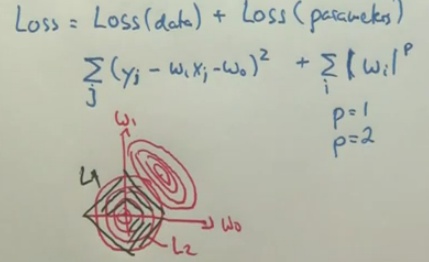 Loss = Loss(data) + Loss(parameters)
∑j (yj - w1xj - w0)² + ∑i |wi|^p
p=1
p=2
w1
L1
w0
L2